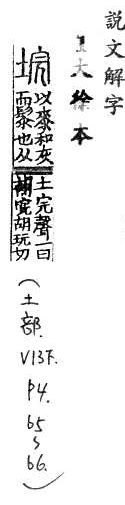 說文解字
大徐本
垸
以桼和灰
而髹也从
土完聲一曰
補垸胡玩切
(土部. V13下. P4. 65~66.)